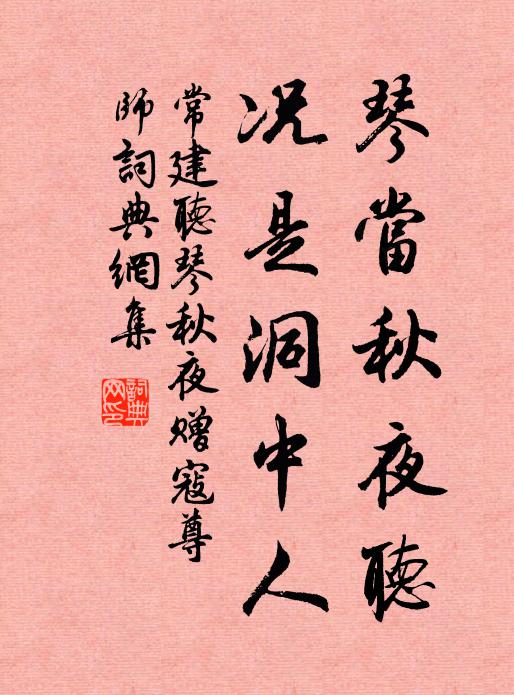 琴當秋夜聽
況是洞中人
常建聽琴秋夜贈寇尊
師詞典網集
詞典网印